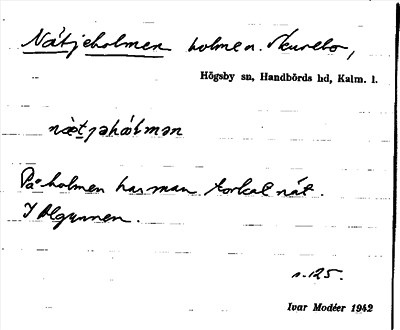 Nätjeholmen holme n. Skurebo,
Högsby sn, Handbörds hd, Kalm. l.
næ̀tjəhål̀mən
På holmen har man torkat nät.
I Algunnen.
s. 125.
Ivar Modéer 1942